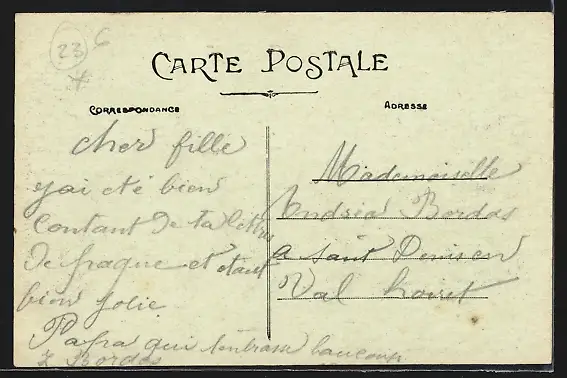 23 C
CARTE POSTALE
CORRESPONDANCE
ADRESSE
cher fille
j'ai eté bien
contant de ta lettre
de
et etait
bien jolie
Papa qui t'enbrasse baucoup
Bordas
Mademoiselle
Andréa Bordas
a saint Denis en
Val Loiret